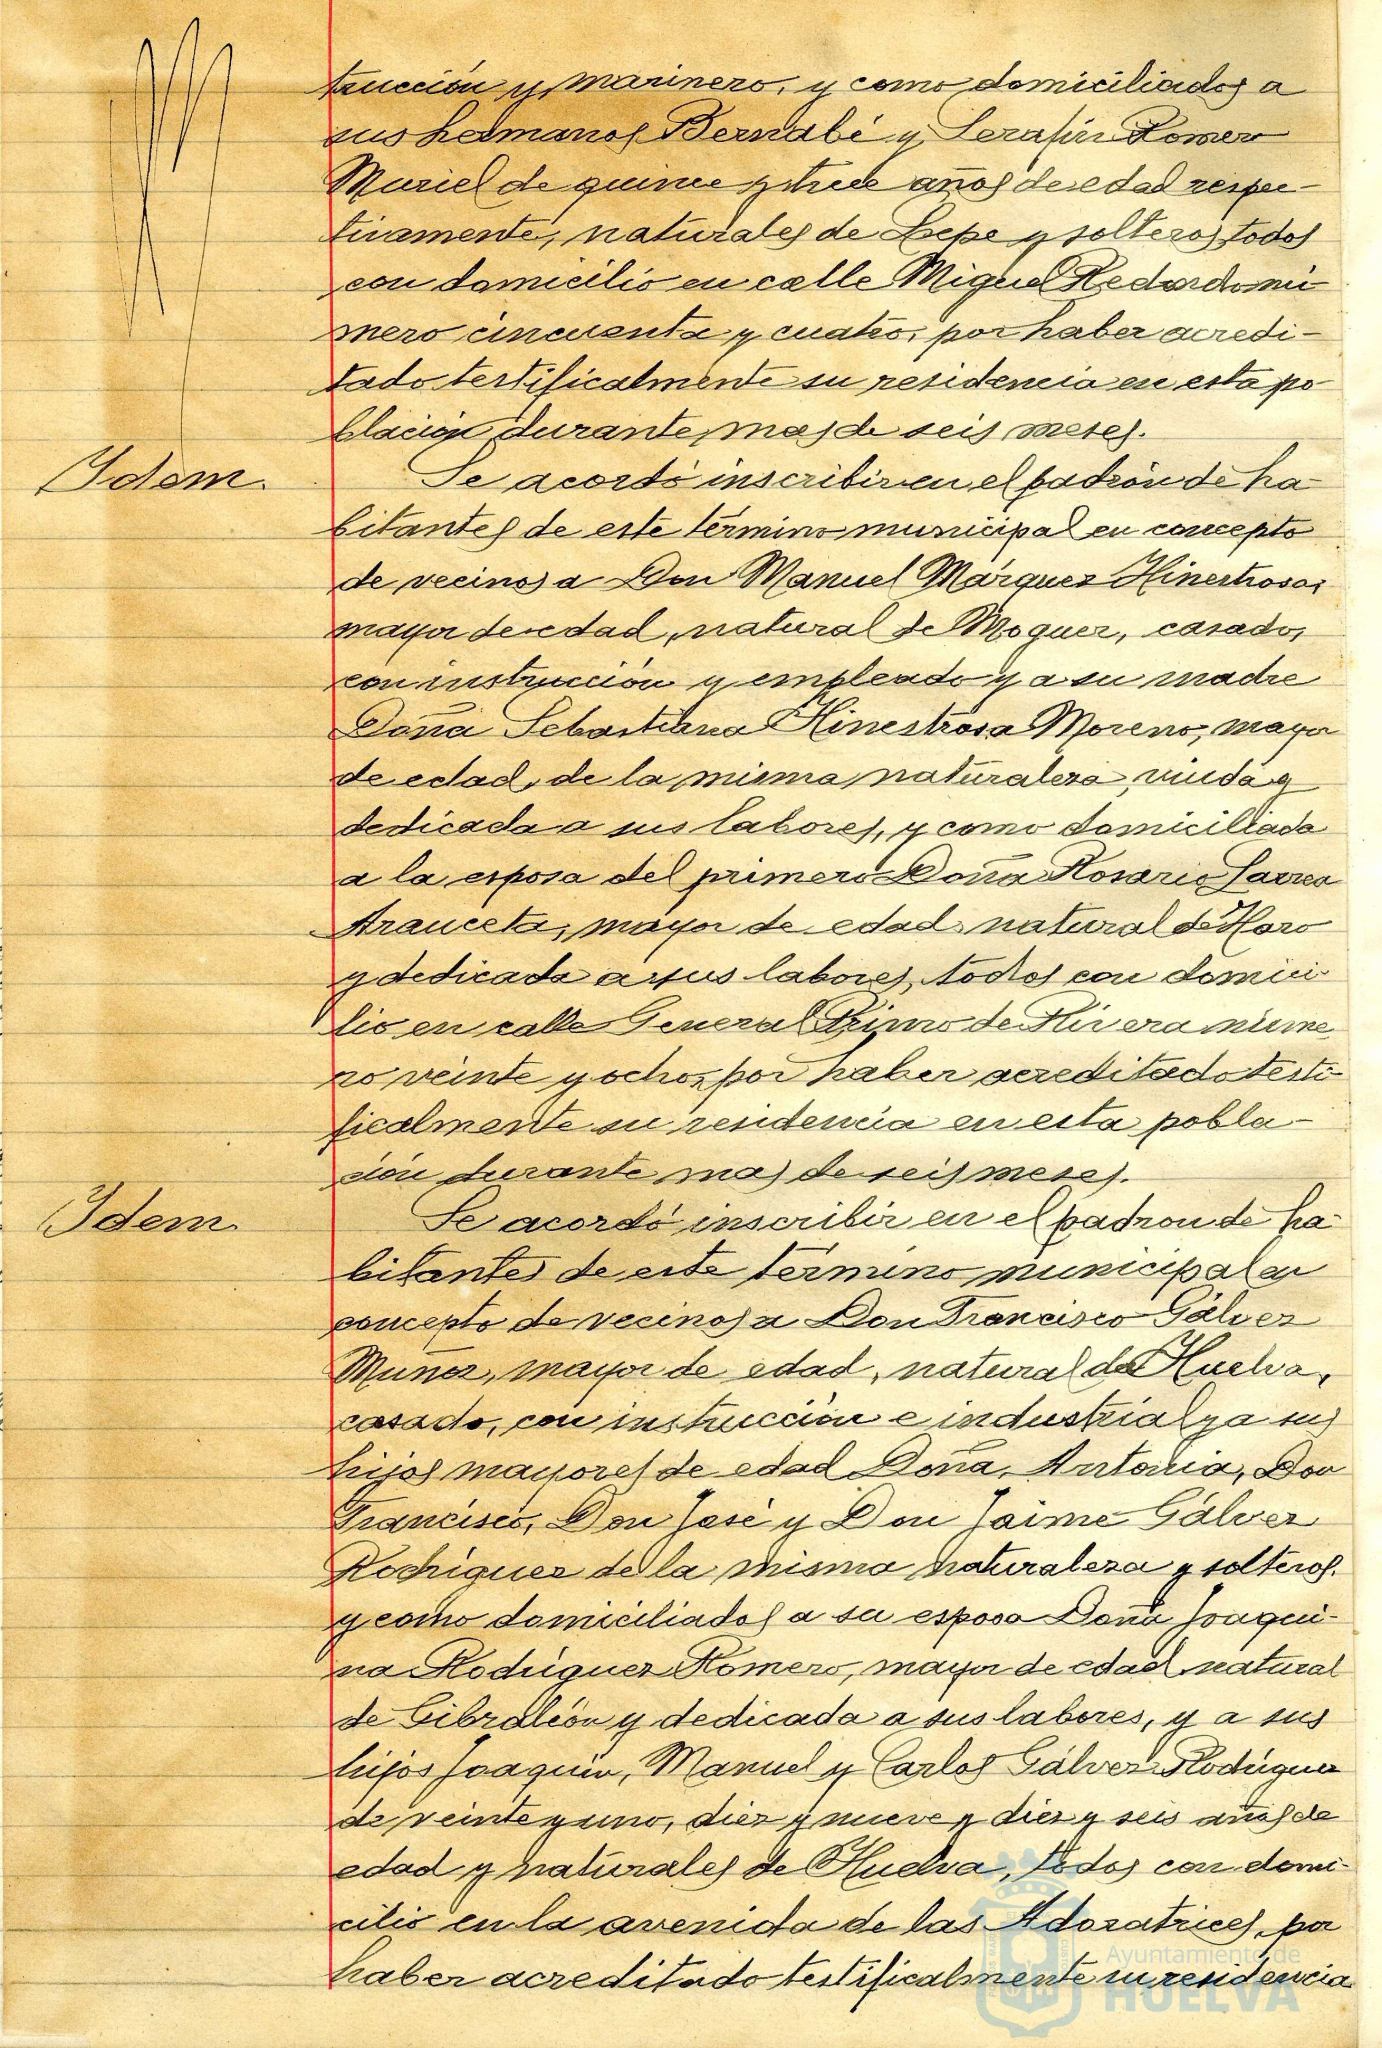 trucción y marinero, y como domiciliados a
sus hermanos Bernabé y Serafin Romero
Muriel de quince y trece años de edad respec-
tivamente, naturales de Lepe y solteros, todos
con domicilio en calle Miguel Redondo nú-
mero cincuenta y cuatro, por haber acredi-
tado testificalmente su residencia en esta po-
blación durante mas de seis meses.
Idem.
Se acordó inscribir en el padrón de ha-
bitantes de este término municipal en concepto
de vecinos a Don Manuel Márquez Hinestrosa,
mayor de edad, natural de Moguer, casado,
con instrucción y empleado y a su madre
Doña Sebastiana Hinestrosa Moreno, mayor
de edad, de la misma naturaleza, viuda y
dedicada a sus labores, y como domiciliada
a la esposa del primero Doña Rosario
mayor de edad, natural de Haro
y dedicada a sus labores, todos con domici-
lio en calle General Primo de Rivera núme-
ro veinte y ocho, por haber acreditado testi-
ficalmente su residencia en esta pobla-
ción durante mas de seis meses.
Idem.
Se acordó inscribir en el padron de ha-
bitantes de este término municipal en
concepto de vecinos a Don Francisco Gálvez
Muñoz, mayor de edad, natural de Huelva,
casado, con instrucción e industrial y a sus
hijos mayores de edad Doña Antonia, Don
Francisco, Don José y Don Jaime Gálvez
Rodriguez de la misma naturaleza y solteros.
y como domiciliados a su esposa Doña Joaqui-
na Rodriguez Romero, mayor de edad, natural
de Gibraleón y dedicada a sus labores, y a sus
hijos Joaquín, Manuel y Carlos Gálvez Rodriguez
de veinte y uno, diez y nueve y diez y seis años de
edad y naturales de Huelva, todos con domi-
cilio en la avenida de las Adoratrices, por
haber acreditado testificalmente su residencia
Ayuntamiento de
HUELVA